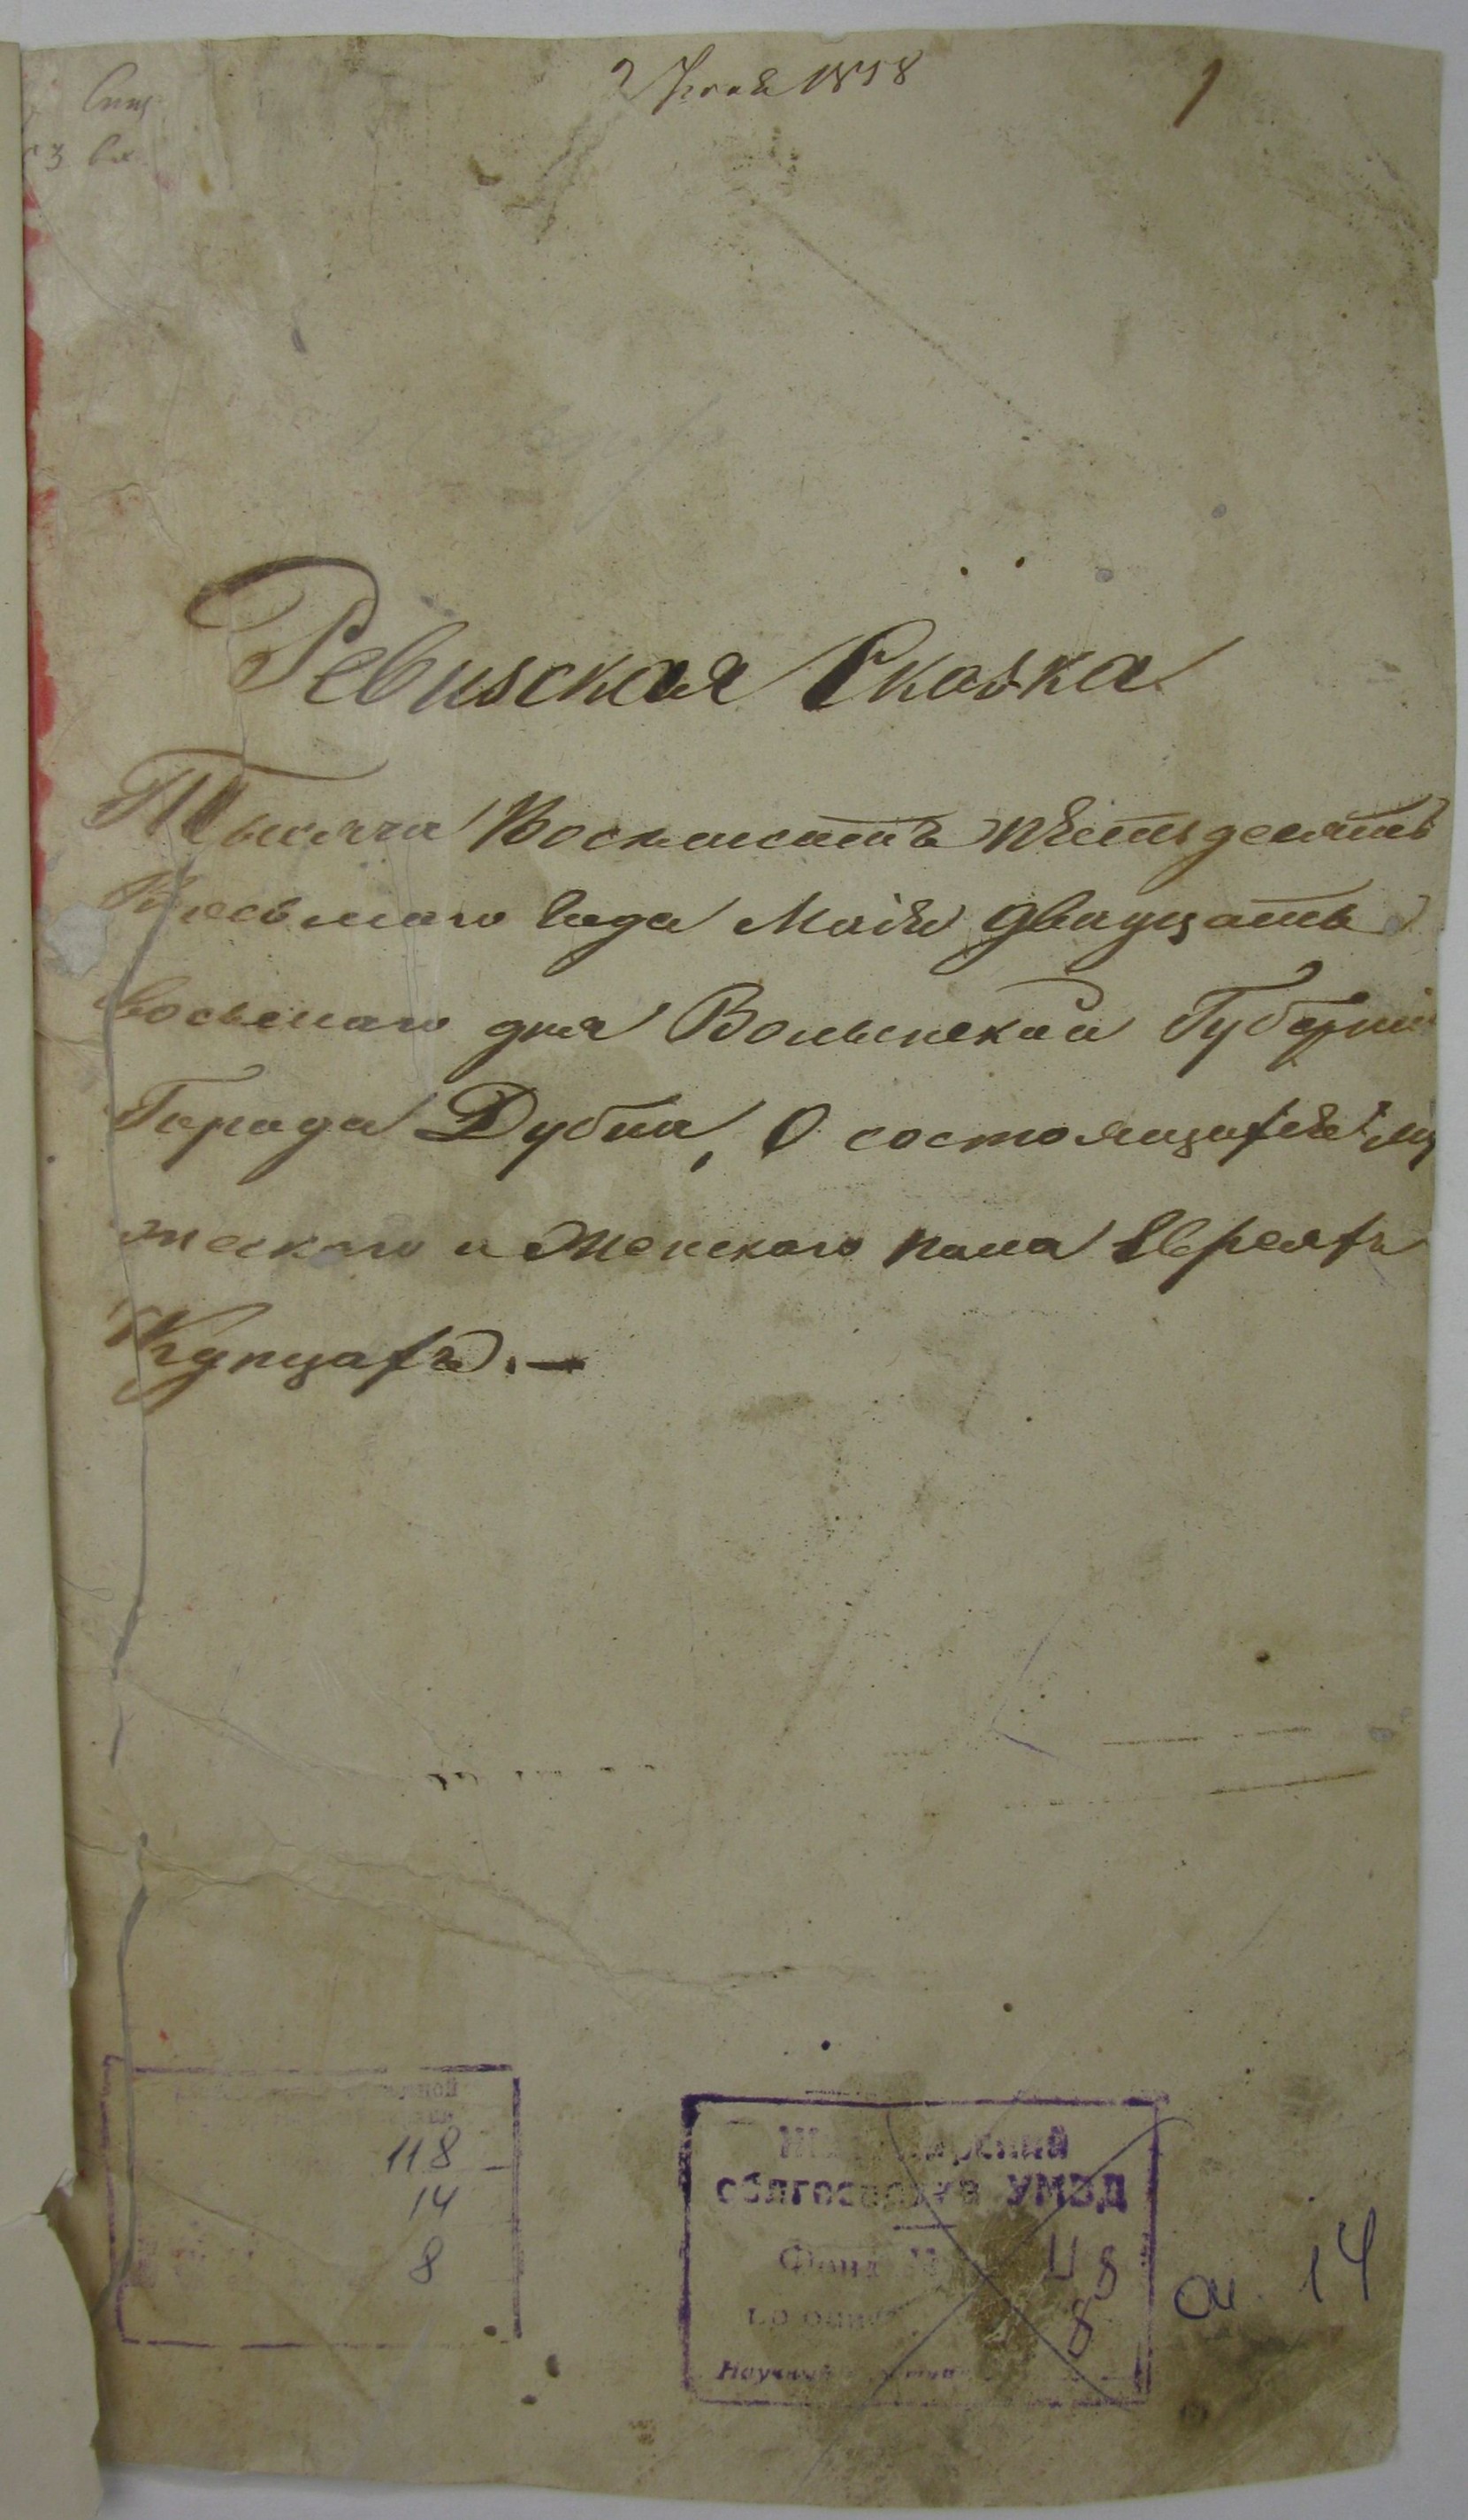 1858
1
Ревизская Сказка
Тысяча Восемьсотъ пѣтьдесятъ
Восьмаго Года Маія двадцать
восьмаго дня Волынской Губерніи
Города Дубна, О состоящихъ му
жескаго и Женскаго пола Евреяхъ
Купцахъ. —
118
14
8
облгосархив УМВД
Фонд № 118
по описи 8
оп. 14